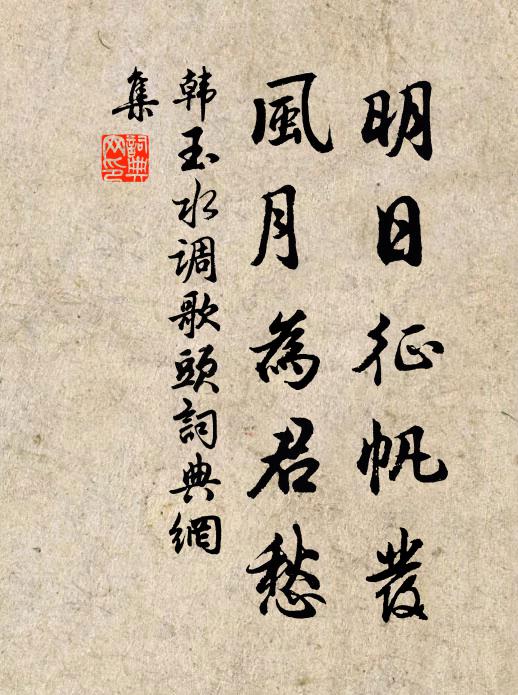 明日征帆發
風月為君愁
韩玉水调歌頭詞典網
集
詞典网印